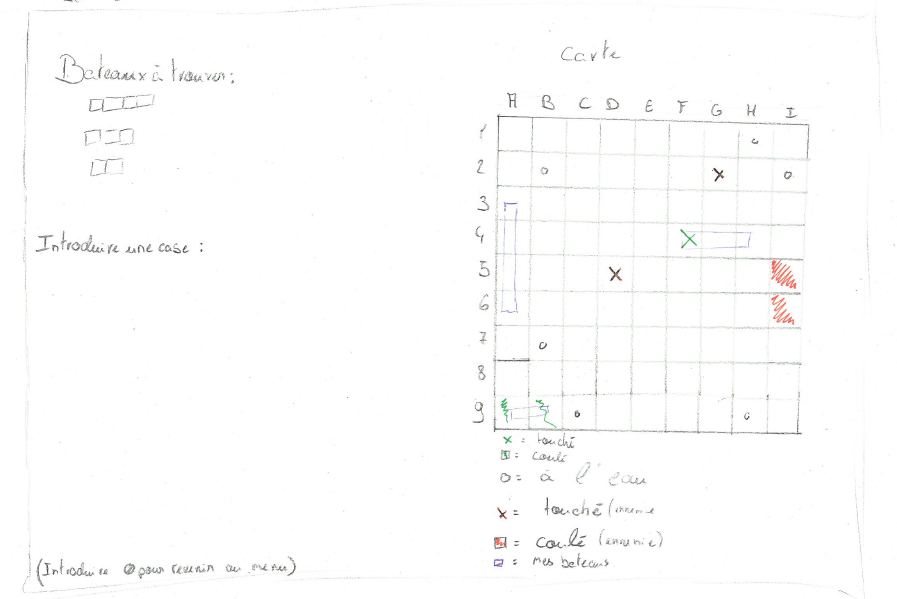 Bateaux à trouver :
Introduire une case :
(Introduire 0 pour revenir au menu)
Carte
A B C D E F G H I
1
2
3
4
5
6
7
8
9
X = touché
= coulé
O = à l'eau
X = touché (ennemie
= coulé (ennemie)
= mes bateaux